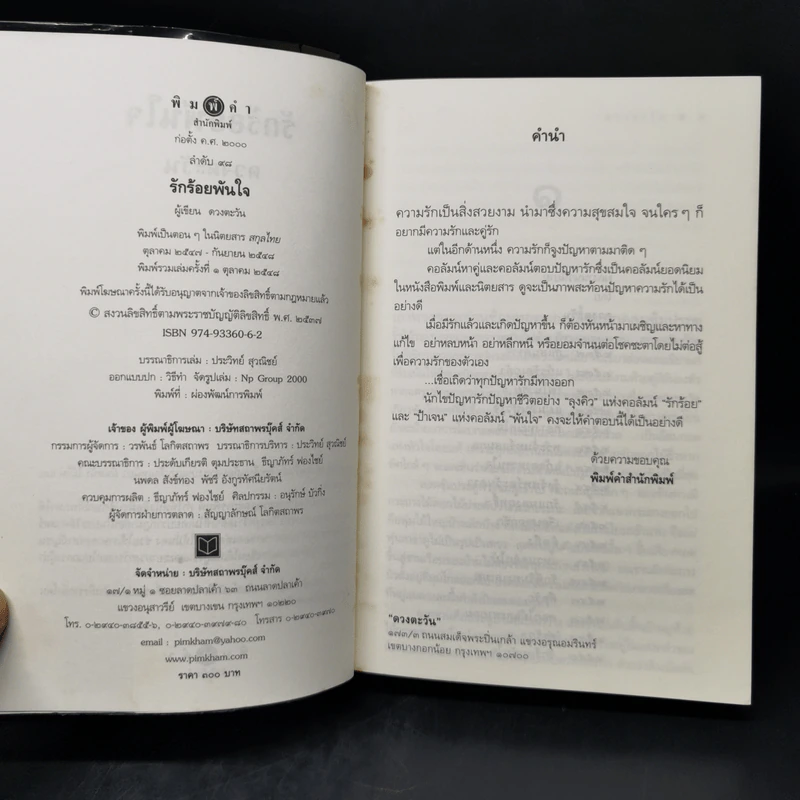 พิม พ์ คำ
สำนักพิมพ์
ก่อตั้ง ค.ศ. ๒๐๐๐
ลำดับ ๙๘
รักร้อยพันใจ
ผู้เขียน ดวงตะวัน
พิมพ์เป็นตอน ๆ ในนิตยสาร สกุลไทย
ตุลาคม ๒๕๔๗ - กันยายน ๒๕๔๘
พิมพ์รวมเล่มครั้งที่ ๑ ตุลาคม ๒๕๔๘
พิมพ์โฆษณาครั้งนี้ได้รับอนุญาตจากเจ้าของลิขสิทธิ์ตามกฎหมายแล้ว
© สงวนลิขสิทธิ์ตามพระราชบัญญัติลิขสิทธิ์ พ.ศ. ๒๕๓๗
ISBN 974-93360-6-2
บรรณาธิการเล่ม : ประวิทย์ สุวณิชย์
ออกแบบปก : วิธีทำ จัดรูปเล่ม : Np Group 2000
พิมพ์ที่ : ผ่องพัฒน์การพิมพ์
เจ้าของ ผู้พิมพ์ผู้โฆษณา : บริษัทสถาพรบุ๊คส์ จำกัด
กรรมการผู้จัดการ : วรพันธ์ โลกิตสถาพร บรรณาธิการบริหาร : ประวิทย์ สุวณิชย์
คณะบรรณาธิการ : ประดับเกียรติ ตุมประธาน ธีญาภัทร์ ฟองไชย์
นพดล สังข์ทอง พัชรี อังกูรทัศนียรัตน์
ควบคุมการผลิต : ธีญาภัทร์ ฟองไชย์ ศิลปกรรม : อนุรักษ์ บัวกิ่ง
ผู้จัดการฝ่ายการตลาด : สัญญาลักษณ์ โลกิตสถาพร
จัดจำหน่าย : บริษัทสถาพรบุ๊คส์ จำกัด
๑๗/๑ หมู่ ๑ ซอยลาดปลาเค้า ๖๓ ถนนลาดปลาเค้า
แขวงอนุสาวรีย์ เขตบางเขน กรุงเทพฯ ๑๐๒๒๐
โทร. ๐-๒๙๔๐-๓๘๕๕-๖, ๐-๒๙๔๐-๓๙๗๙-๘๐ โทรสาร ๐-๒๙๔๐-๓๙๗๐
email : pimkham@yahoo.com
www.pimkham.com
ราคา ๓๐๐ บาท
คำนำ
ความรักเป็นสิ่งสวยงาม นำมาซึ่งความสุขสมใจ จนใคร ๆ ก็
อยากมีความรักและคู่รัก
แต่ในอีกด้านหนึ่ง ความรักก็จูงปัญหาตามมาติด ๆ
คอลัมน์หาคู่และคอลัมน์ตอบปัญหารักซึ่งเป็นคอลัมน์ยอดนิยม
ในหนังสือพิมพ์และนิตยสาร ดูจะเป็นภาพสะท้อนปัญหาความรักได้เป็น
อย่างดี
เมื่อมีรักแล้วและเกิดปัญหาขึ้น ก็ต้องหันหน้ามาเผชิญและหาทาง
แก้ไข อย่าหลบหน้า อย่าหลีกหนี หรือยอมจำนนต่อโชคชะตาโดยไม่ต่อสู้
เพื่อความรักของตัวเอง
...เชื่อเถิดว่าทุกปัญหารักมีทางออก
นักไขปัญหารักปัญหาชีวิตอย่าง “ลุงคิว” แห่งคอลัมน์ “รักร้อย”
และ “ป้าเจน” แห่งคอลัมน์ “พันใจ” คงจะให้คำตอบนี้ได้เป็นอย่างดี
ด้วยความขอบคุณ
พิมพ์คำสำนักพิมพ์
“ดวงตะวัน”
๑๗๓/๓ ถนนสมเด็จพระปิ่นเกล้า แขวงอรุณอมรินทร์
เขตบางกอกน้อย กรุงเทพฯ ๑๐๗๐๐